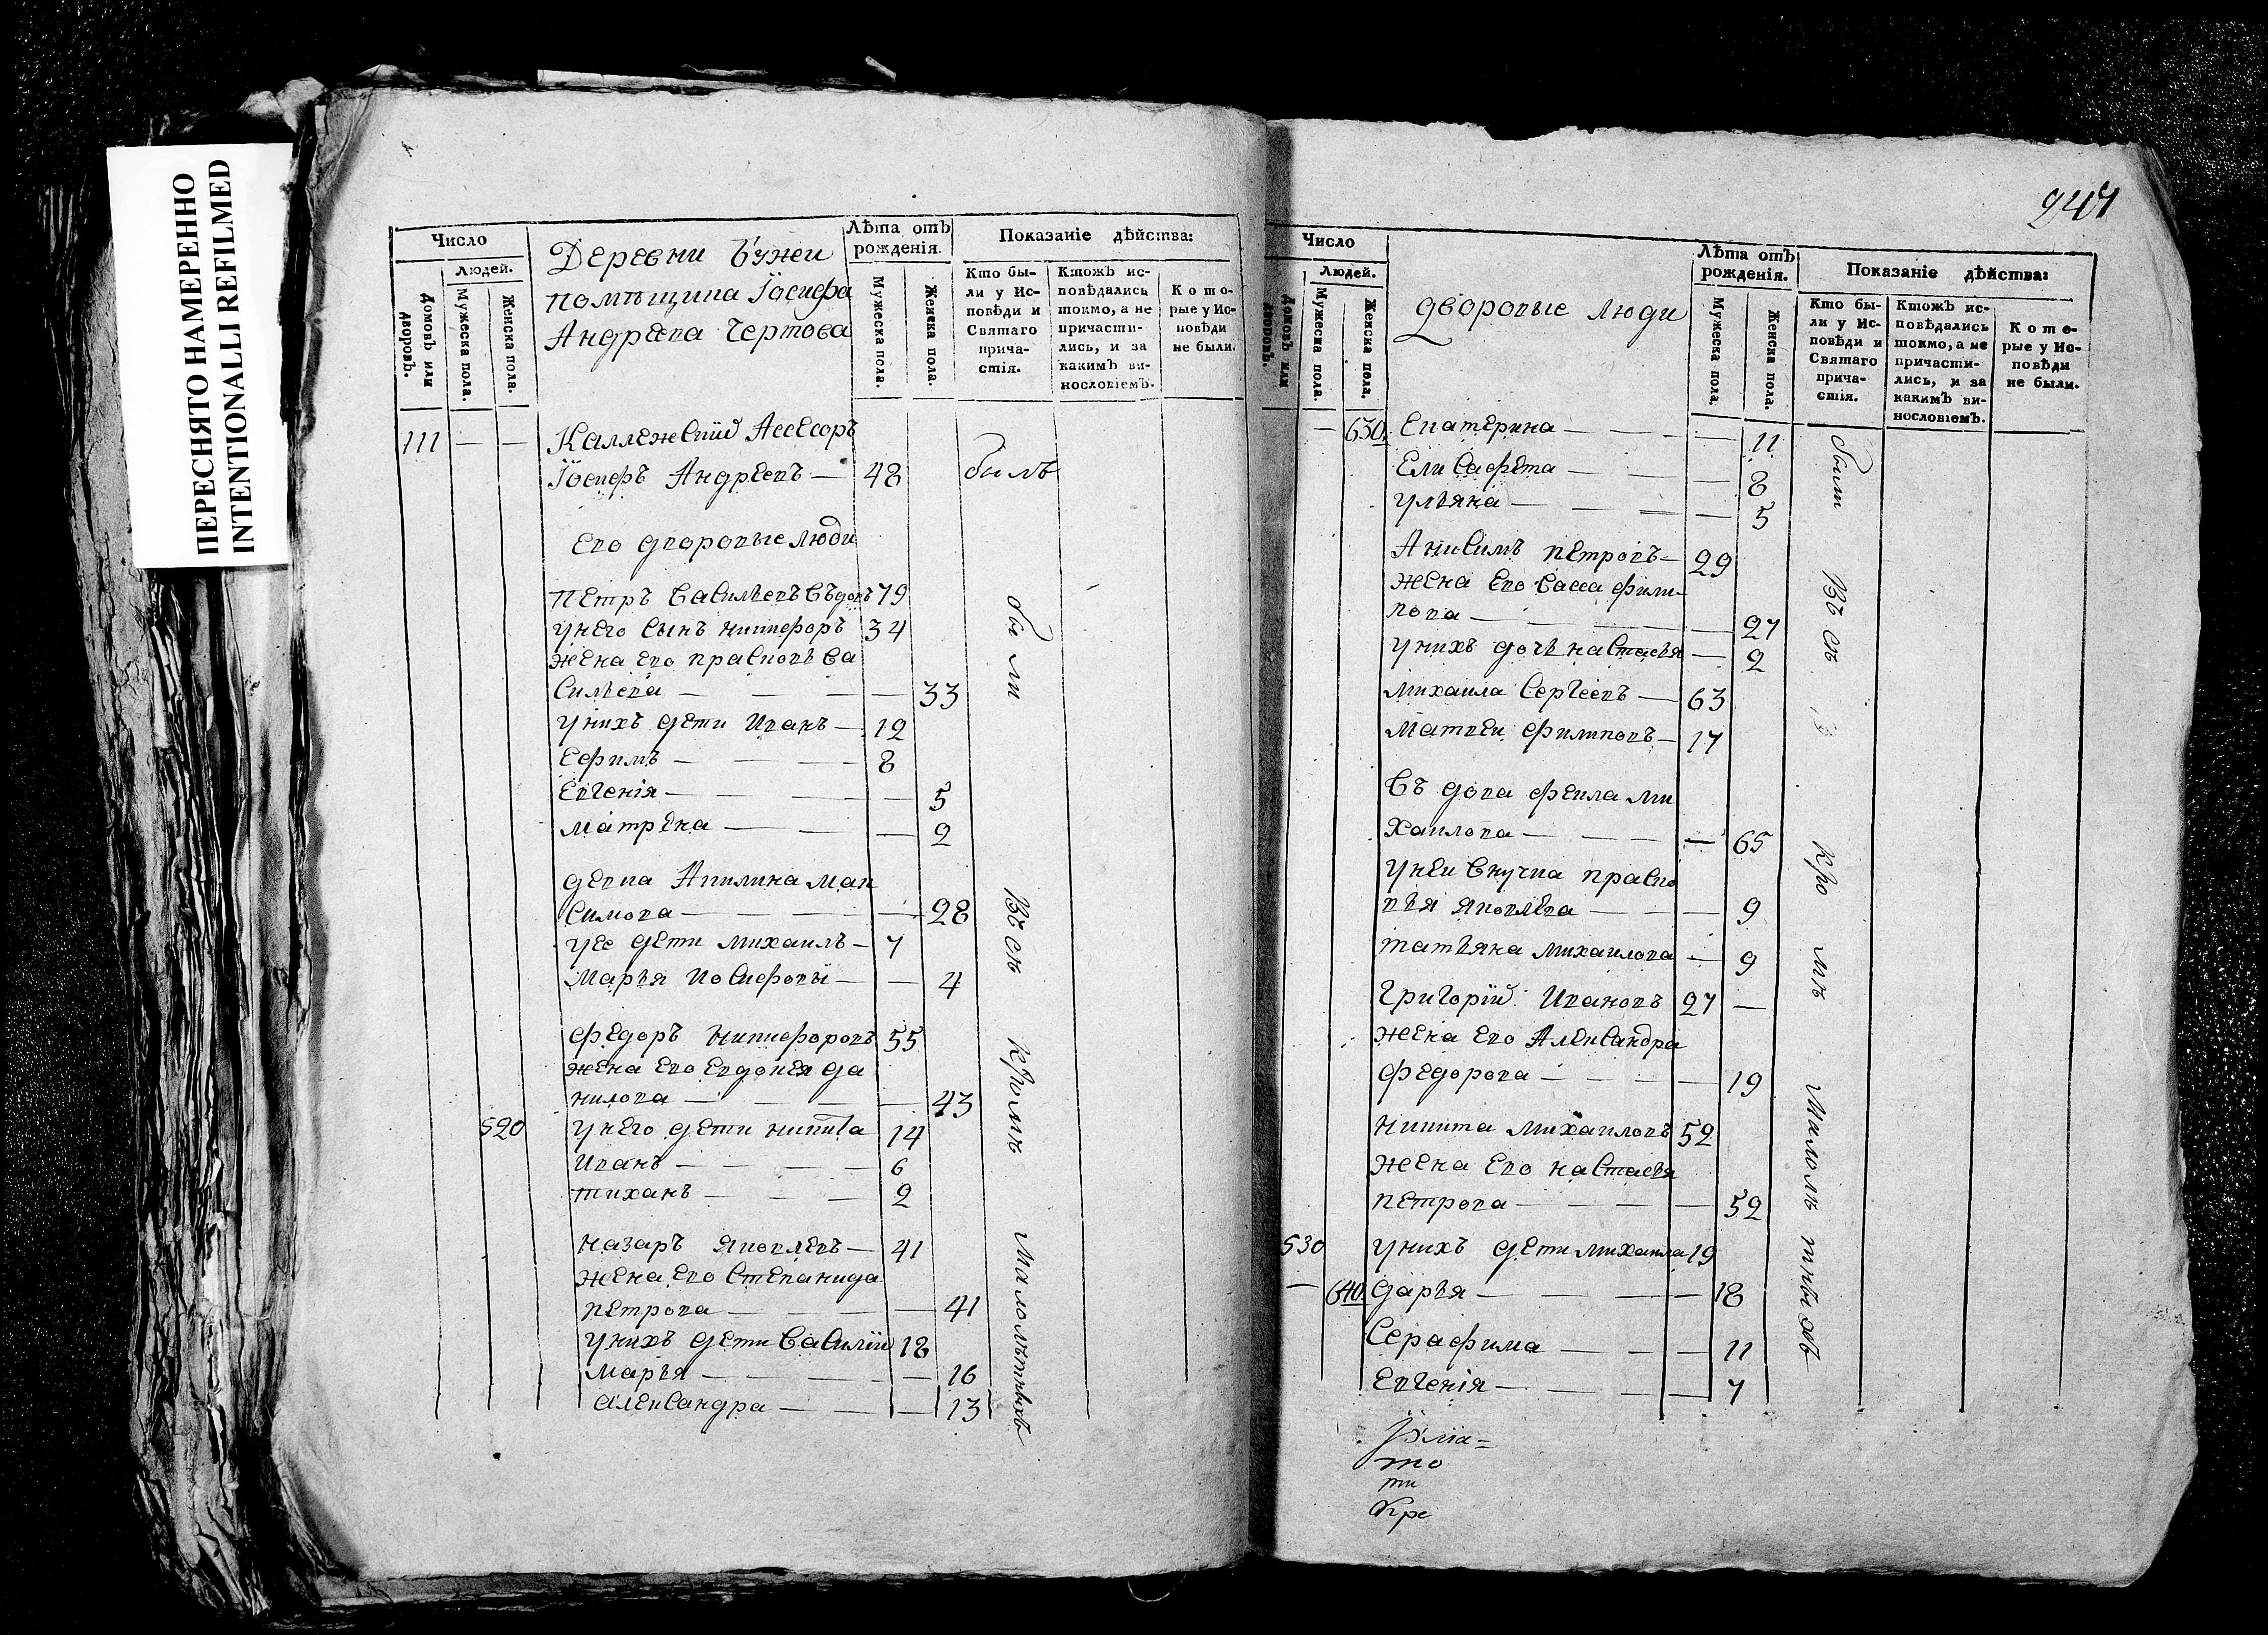 ПЕРЕСНЯТО НАМЕРЕННО
INTENTIONALLI REFILMED
Число
Людей.
Домовъ или дворовъ.
Мужеска пола.
Женска пола.
Деревни Бужеи
помѣщика Іосифа
Андрѣева Чертова
Лѣта отъ
рожденія.
Мужеска пола.
Женска пола.
Показаніе дѣйства:
Кто бы-
ли у Ис-
повѣди и
Святаго
прича-
стія.
Ктожъ ис-
повѣдались
токмо, а не
причасти-
лись, и за
какимъ ви-
нословіемъ.
Кото-
рые у Ис-
повѣди
не были.
111 — — Каллежский Асесоръ
Іосифъ Андреевъ — 48 былъ
Его дворовые люди
Петръ Васильевъ Въдовъ 79
у него сынъ никифоръ 34
жена его прасковья Ва
сильева — — — — 33
у нихъ дети Иванъ — 12
Ефимъ — — — 8
Евгенія — — — — 5
матрена — — — 2
девка Акилина мак
симова — — — — 28
у ее дети михаилъ — 7
марья иосифовы — — 4
федоръ никифоровъ 55
жена его евдокея да
нилова — — — — 43
520 у него дети никита 14
Иванъ — — — 6
тиханъ — — — 2
назаръ яковлевъ — 41
жена его степанида
петрова — — — — 41
у нихъ дети василий 18
марья — — — — 16
александра — — — 13
были Всѣ кромѣ малолѣтныхъ
947
Число
Людей.
Домовъ или дворовъ.
Мужеска пола.
Женска пола.
дворовые люди
Лѣта отъ
рожденія.
Мужеска пола.
Женска пола.
Показаніе дѣйства:
Кто бы-
ли у Ис-
повѣди и
Святаго
прича-
стія.
Ктожъ ис-
повѣдались
токмо, а не
причасти-
лись, и за
какимъ ви-
нословіемъ.
Кото-
рые у Ис-
повѣди
не были.
— 630. Екатерина — — — — 11
Елисафета — — — 8
ульяна — — — — 5
Анисимъ петровъ — 29
жена его васса фили-
пова — — — — 27
у нихъ дочь настасья — 2
михаила Сергеевъ — 63
Матвеи филиповъ — 17
въдова фекла ми
хаилова — — — — 65
у неи внучка праско
вья яковлева — — — 9
татьяна михаилова — 9
Григорий Ивановъ 27 —
жена его Александра
федорова — — — — 19
никита михаиловъ 52
жена его настасья
петрова — — — — 52
530 у нихъ дети михаила 19
— 640. дарья — — — — 18
Серафима — — — 11
Евгенія — — — — 7
были Всѣ кромѣ Малолѣтныхъ
то
ти
Кре